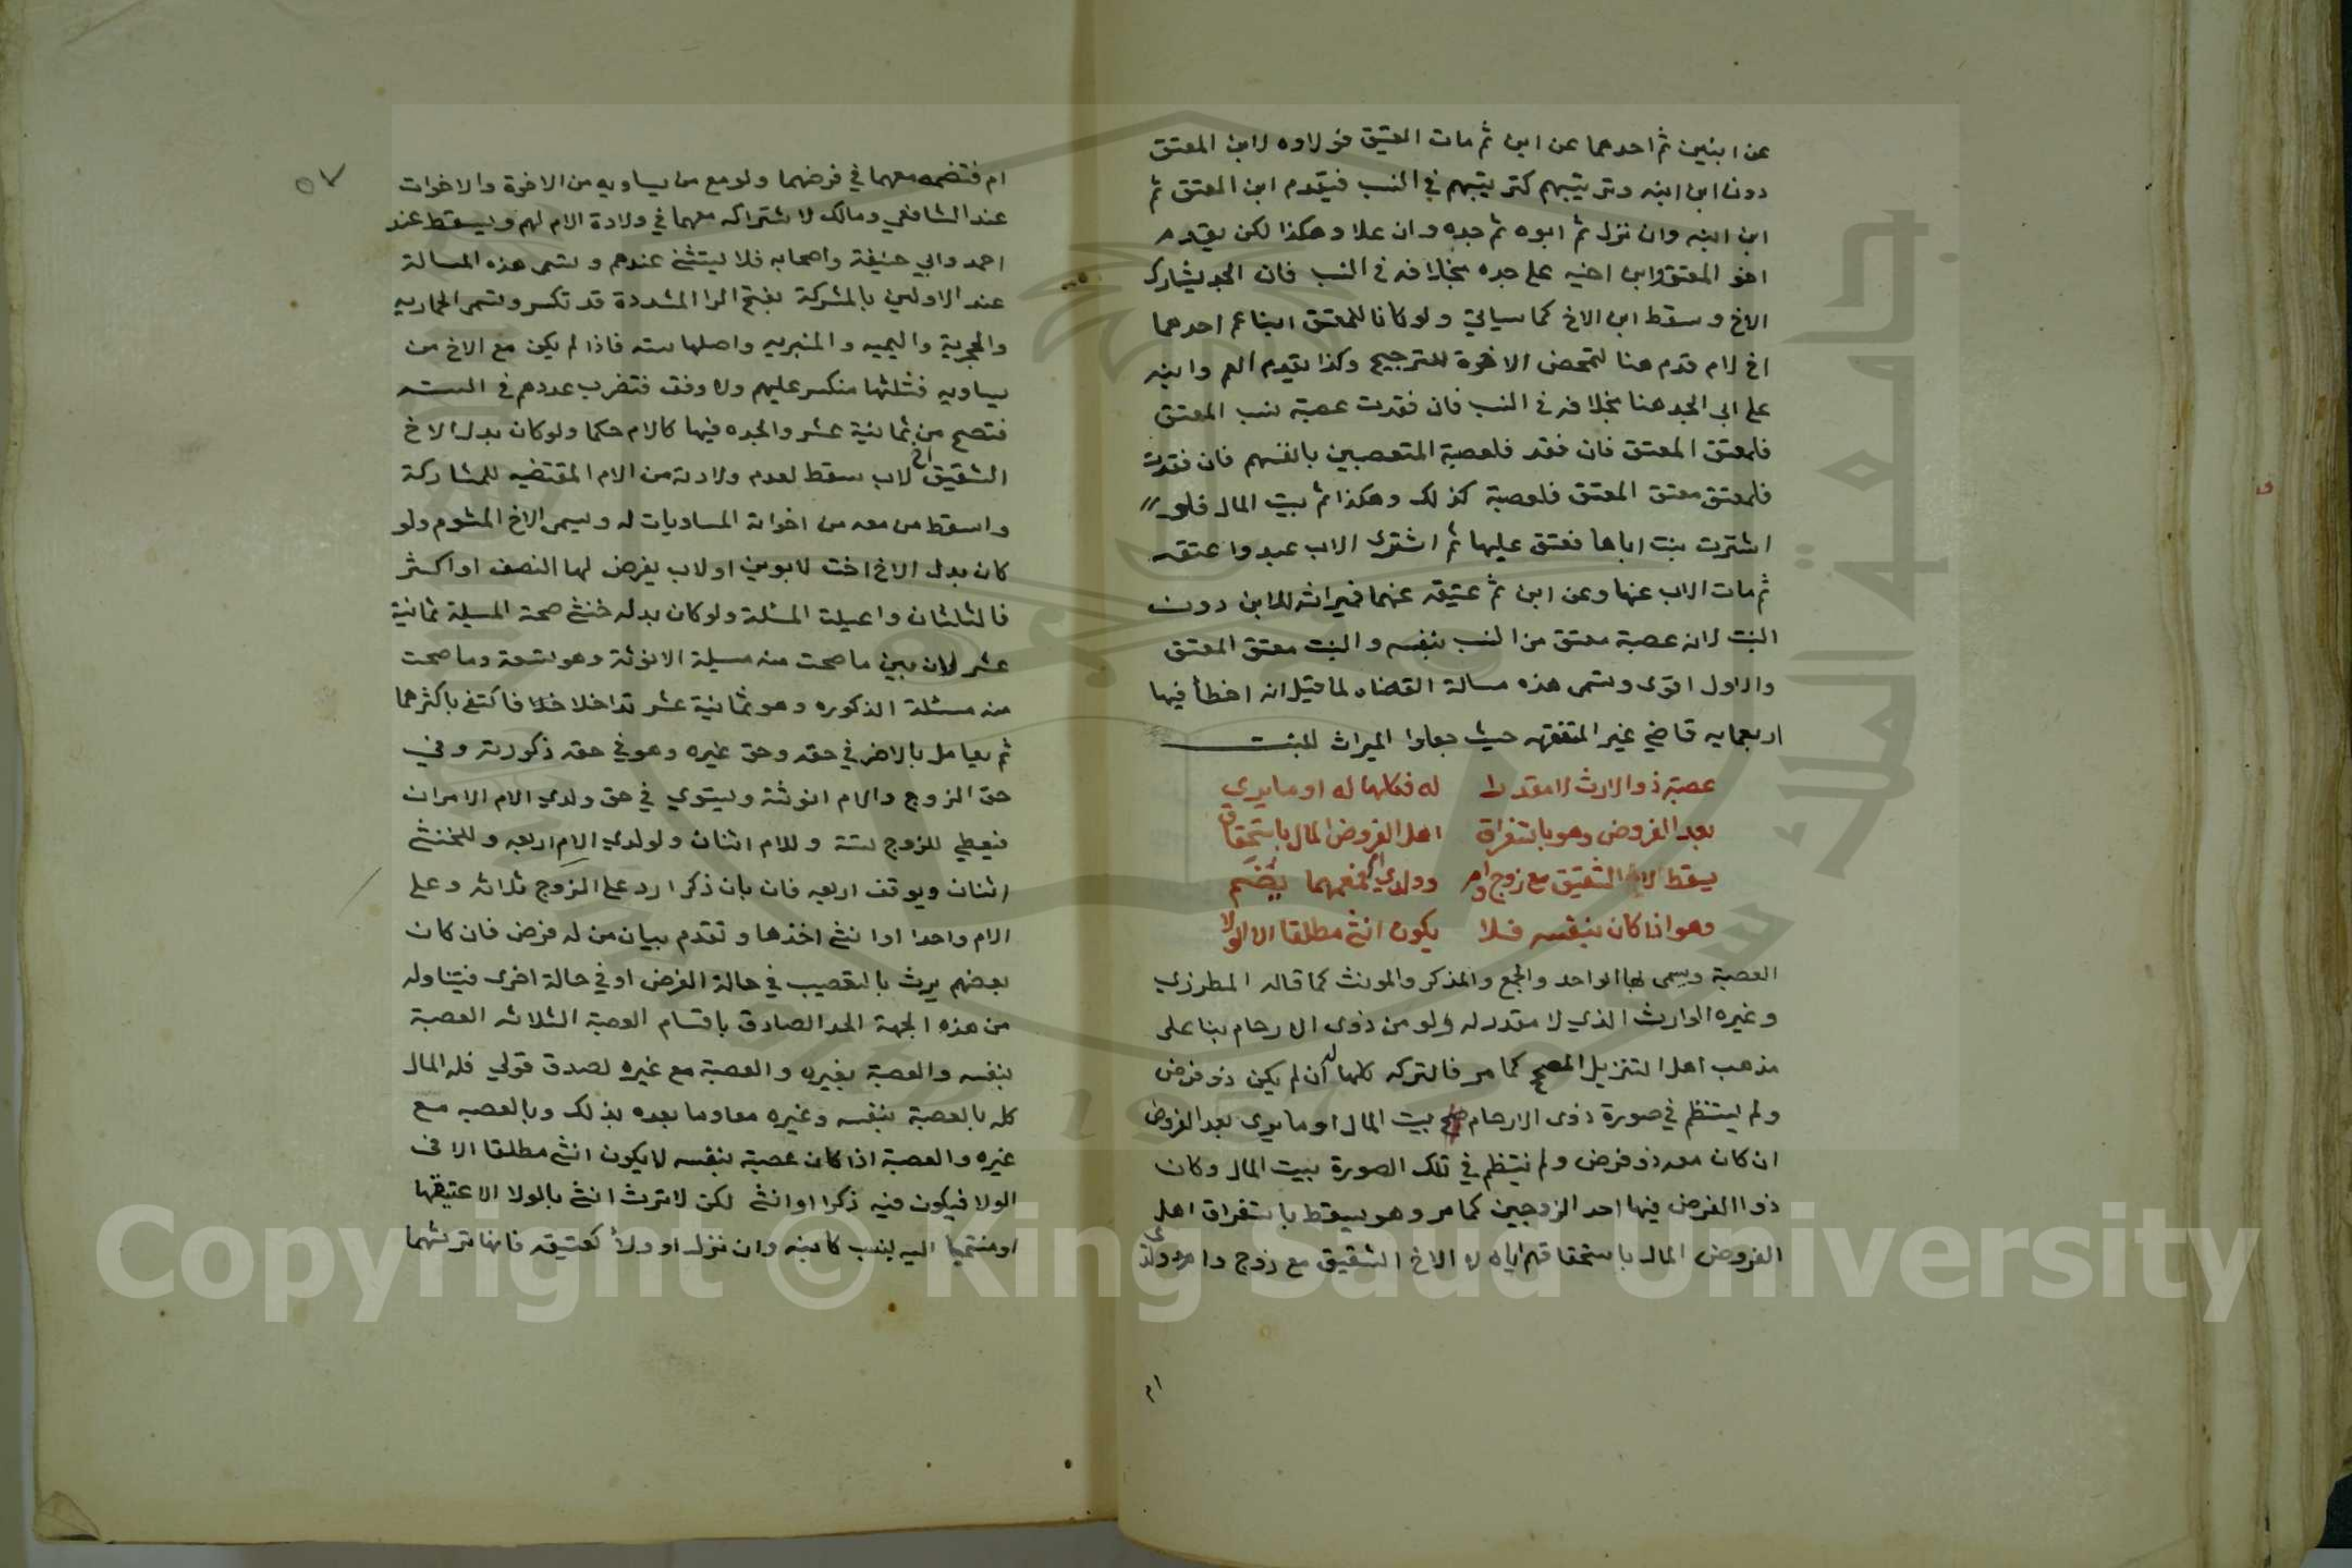 عن ابنين ثم احدهما عن ابن ثم مات العتيق فولاوه لابن المعتق
دون ابن ابنه وترتيبهم كترتيبهم في النسب فيقدم ابن المعتق ثم
ابن ابنه وان نزل ثم ابوه ثم جده وان علا وهكذا لكن يقدم
اخو المعتق وابن اخيه على جده بخلافه في النسب فان الجد يشارك
الاخ وسقط ابن الاخ كما سياتي ولو كانا للمعتق ابنا عم احدهما
اخ لام قدم هنا لتمحض الاخوة للترجيح وكذا يقدم العم وابنه
على ابي الجد هنا بخلافه في النسب فان فقدت عصبة نسب المعتق
فلمعتق المعتق فان فقد فلعصبة المتعصبين بانفسهم فان فقدت
فلمعتق معتق المعتق فلعصبة كذلك وهكذا ثم بيت المال فلو
اشترت بنت اباها فعتق عليها ثم اشترى الاب عبد واعتقه
ثم مات الاب عنها وعن ابن ثم عتيقه عنهما فميراثه للابن دون
البنت لانه عصبة معتق من النسب بنفسه والبنت معتق المعتق
والاول اقوى وتسمى هذه مسالة القضاه لما قيل انه اخطأ فيها
اربعمايه قاضي غير المتفقهه حيث جعلوا الميراث للبنت
عصبة ذو الارث لا مقدرا له فكلها له او ما يرى
بعد الفروض وهو باستغراق اهل الفروض المال باستحقاق
يسقط لا الشقيق مع زوج وام وولدي فمعهما يضم
وهو اذا كان بنفسه فلا يكون انثى مطلقا الا الولا
العصبة ويسمى بها الواحد والجمع والمذكر والمونث كما قاله المطرزي
وغيره الوارث الذي لا مقدر له ولو من ذوى الارحام بنا على
مذهب اهل التنزيل المصحح كما مر فالتركه كلها له ان لم يكن ذو فرض
ولم ينتظم في صورة ذوى الارحام بيت المال او ما يرى بعد الفروض
ان كان معه ذو فرض ولم ينتظم في تلك الصورة بيت المال وكان
ذوا الفرض فيها احد الزوجين كما مر وهو يسقط باستغراق اهل
الفروض المال باستحقاقهم اياه لا الاخ الشقيق مع زوج وام وولدى
ام
٥٧
ام فتضمه معهما في فرضهما ولو مع من يساويه من الاخوة والاخوات
عند الشافعي ومالك لاشتراكه معهما في ولادة الام لهم ويسقط عند
احمد وابي حنيفة واصحابه فلا يستثنى عندهم وتسمى هذه المسالة
عند الاولين بالمشركة بفتح الرا المشددة قد تكسر وتسمى الحماريه
والحجرية واليميه والمنبريه واصلها سته فاذا لم يكن مع الاخ من
يساويه فثلثها منكسر عليهم ولا وفق فتضرب عددهم في الستة
فتصح من ثمانية عشر والجده فيها كالام حكما ولو كان بدل الاخ
الشقيق اخ لاب سقط لعدم ولادته من الام المقتضيه للمشاركة
واسقط من معه من اخواته المساويات له ويسمى الاخ المشوم ولو
كان بدل الاخ اخت لابوين او لاب يفرض لها النصف او اكثر
فالثلثان واعيلت المسئلة ولو كان بدله خنثى صحة المسيلة ثمانية
عشر لان بين ما صحت منه مسيلة الانوثة وهو تسعة وما صحت
منه مسئلة الذكوره وهو ثمانية عشر تداخلا فاكتفى باكثرهما
ثم يعامل بالاضر في حقه وحق غيره وهو في حقه ذكورته وفي
حق الزوج والام انوثته ويستوي في حق ولدي الام الامران
فيعطي للزوج ستة وللام اثنان ولولدي الام اربعه وللخنثى
اثنان ويوقف اربعه فان بان ذكرا رد على الزوج ثلاثه وعلى
الام واحدا او انثى اخذها وتقدم بيان من له فرض فان كان
بعضهم يرث بالتعصيب في حالة الفرض او في حالة اخرى فيتناوله
من هذه الجهة الحد الصادق باقسام العصبة الثلاثه العصبة
بنفسه والعصبة بغيره والعصبة مع غيره لصدق قولي فله المال
كله بالعصبة بنفسه وغيره معا وما بعده بذلك وبالعصبه مع
غيره والعصبة اذا كان عصبة بنفسه لا يكون انثى مطلقا الا في
الولا فيكون فيه ذكرا او انثى لكن لا ترث انثى بالولا الا عتيقها
او منتميا اليه بنسب كابنه وان نزل او ولأ كعتيقه فانها ترثهما
Copyright © King Saud University